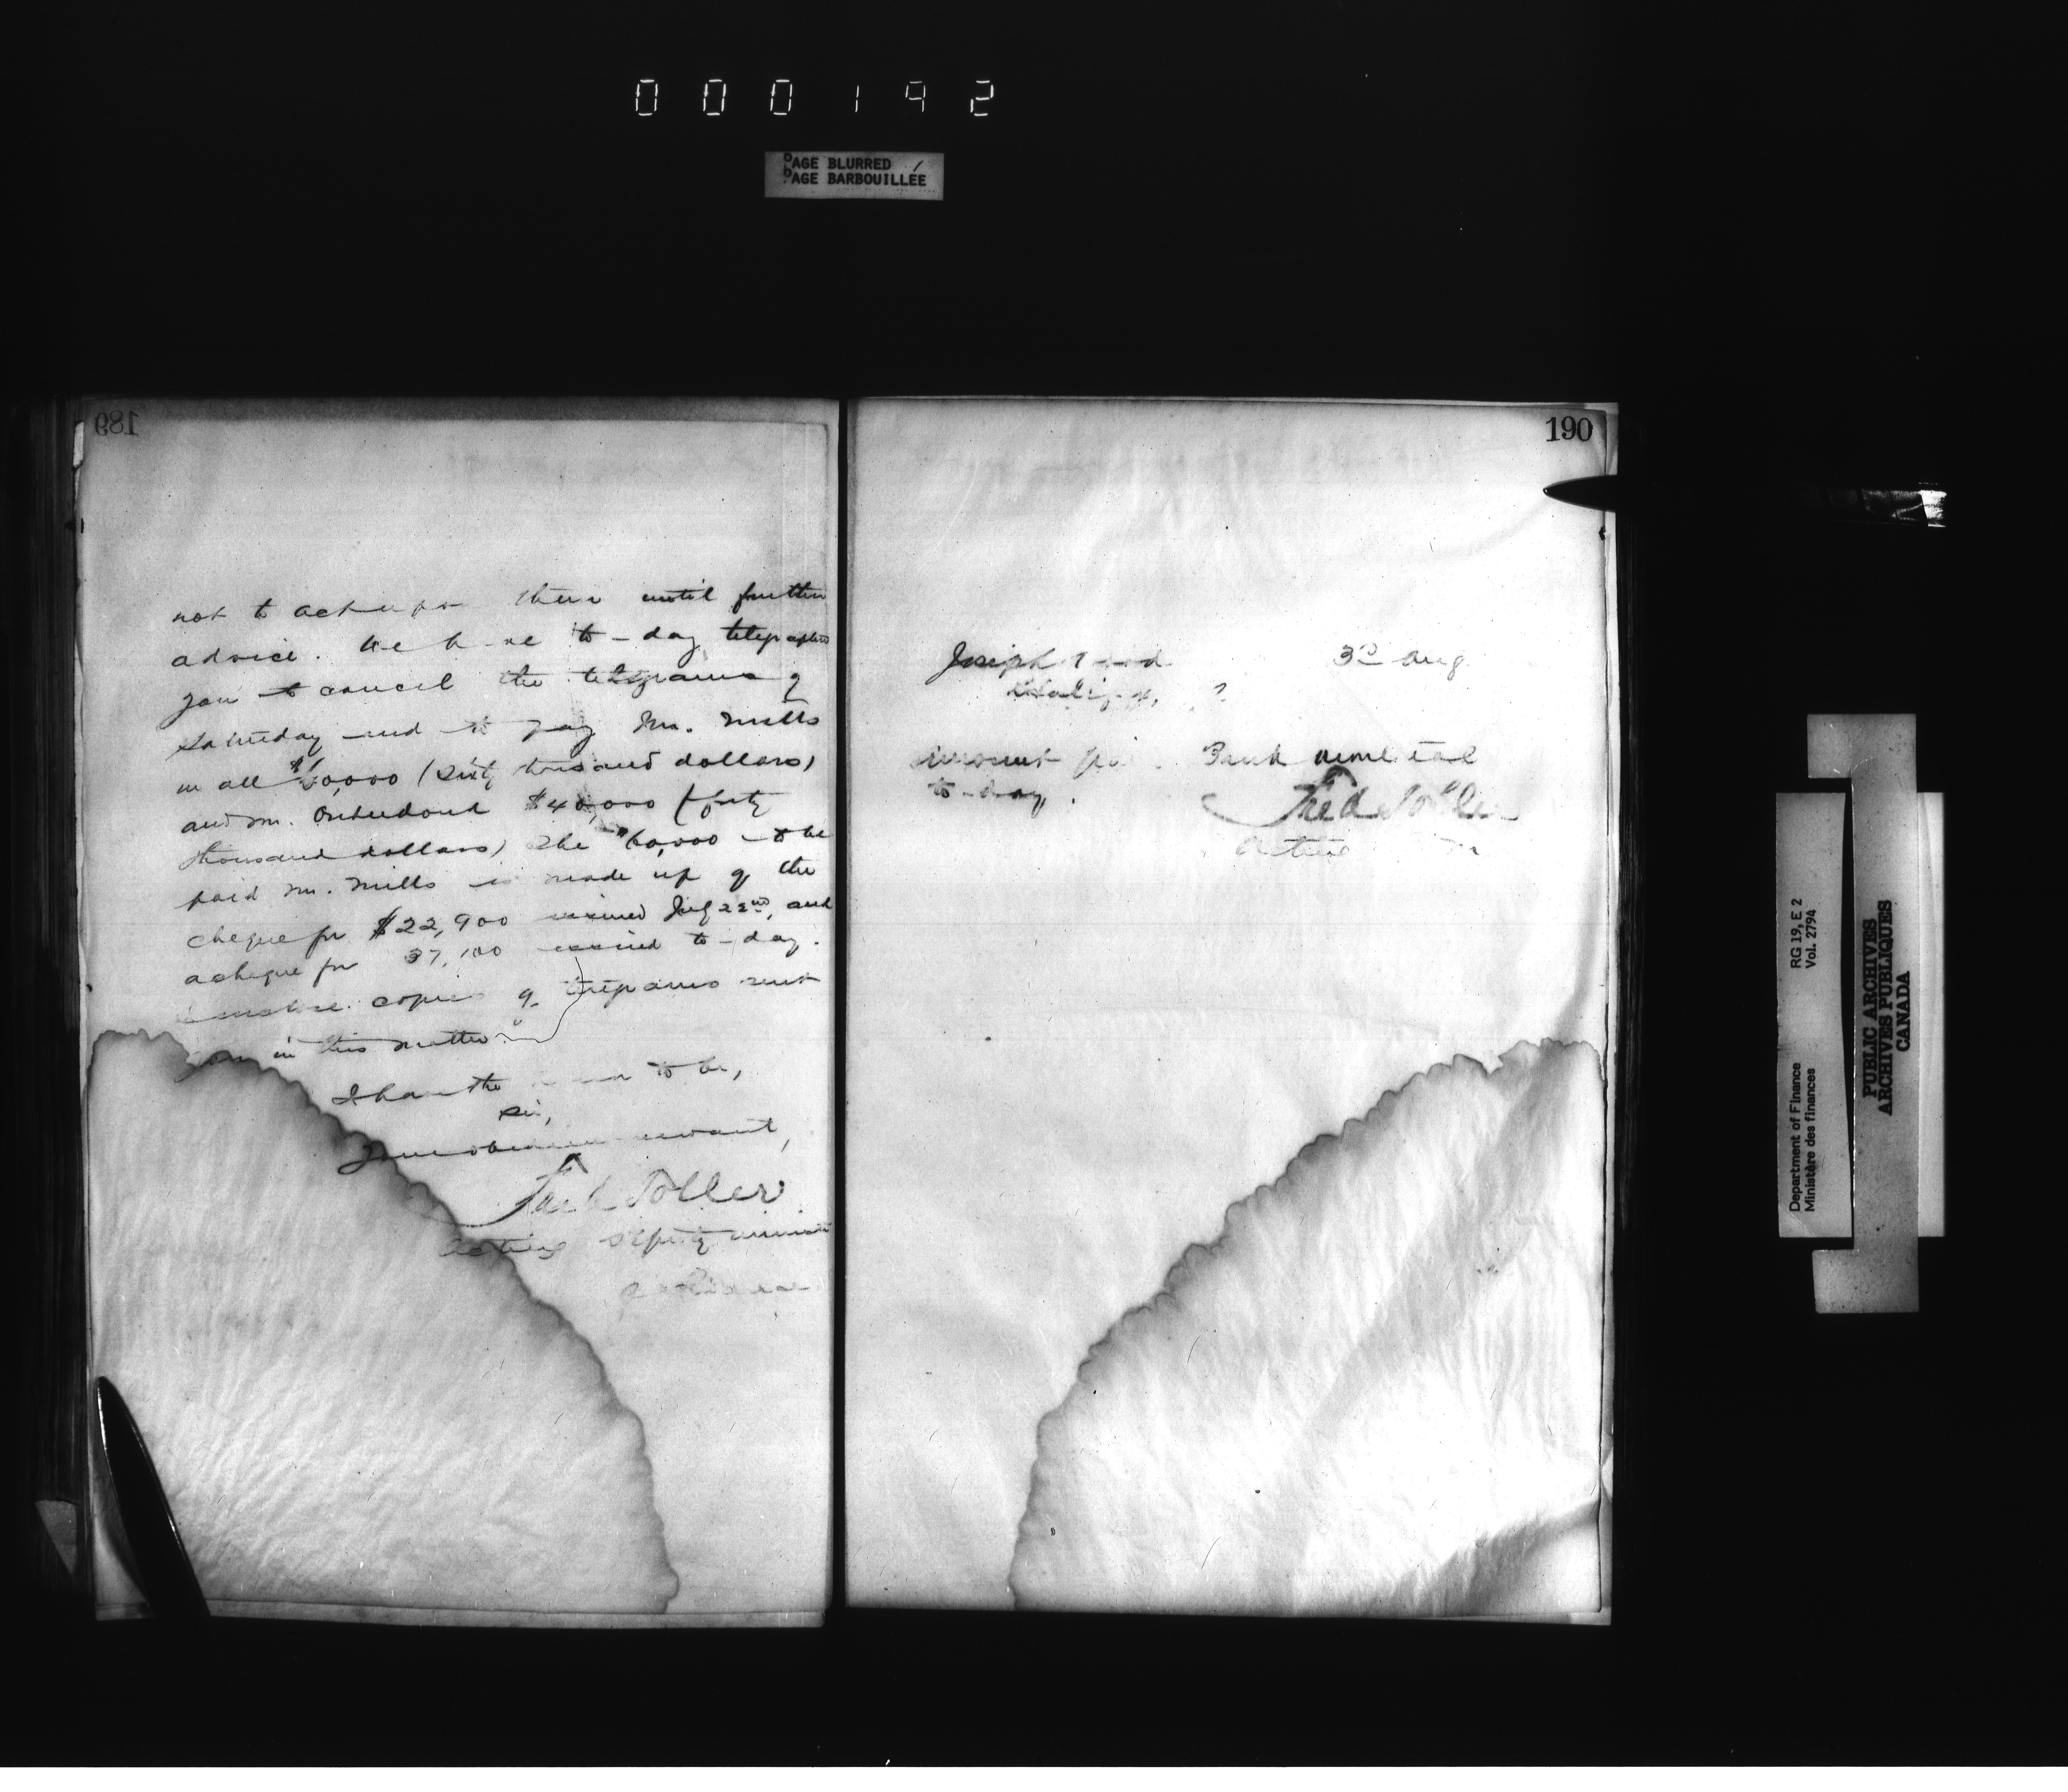 000192
PAGE BLURRED
PAGE BARBOUILLÉE
189
not to act upon them until further
advice. We have to-day telegraphed
you to cancel the telegrams of
Saturday and to pay Mr. Mills
in all $60,000 (sixty thousand dollars)
and Mr. $40,000 (forty
thousand dollars) The 60,000 to be
paid Mr. Mills is made up of the
cheque for $22,900 received July 22nd, and
a cheque for 37,100 received to-day.
I enclose copies of telegrams sent
you in this matter.
I have the honor to be,
Sir,
Your obedient servant,
Fred Toller
Acting Deputy Minister
of Finance
190
Joseph 3rd Aug
Halifax,
Amount Bank
to-day.
Fred Toller
Acting
Department of Finance RG 19, E 2
Ministère des finances Vol. 2794
PUBLIC ARCHIVES
ARCHIVES PUBLIQUES
CANADA